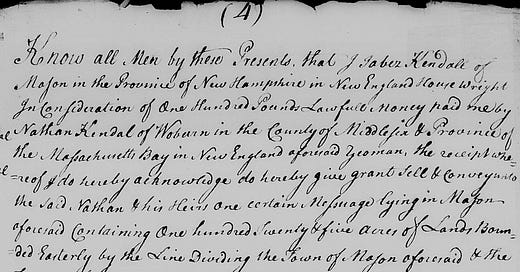 (4)
Know all Men by these Presents, that I Jabez Kendall of
Mason in the Province of New Hampshire in New England House wright
In Consideration of One Hundred Pounds Lawfull Money paid me by
Nathan Kendal of Woburn in the County of Middlesex & Province of
the Massachusetts Bay in New England aforesaid Yeoman, the receipt whe-
=reof I do hereby acknowledge do hereby give grant Sell & Convey unto
the Said Nathan & his Heirs One certain Messuage lying in Mason
aforesaid Containing One hundred Twenty & five acres of Lands Boun-
=ded Easterly by the Line Dividing the Town of Mason aforesaid & the